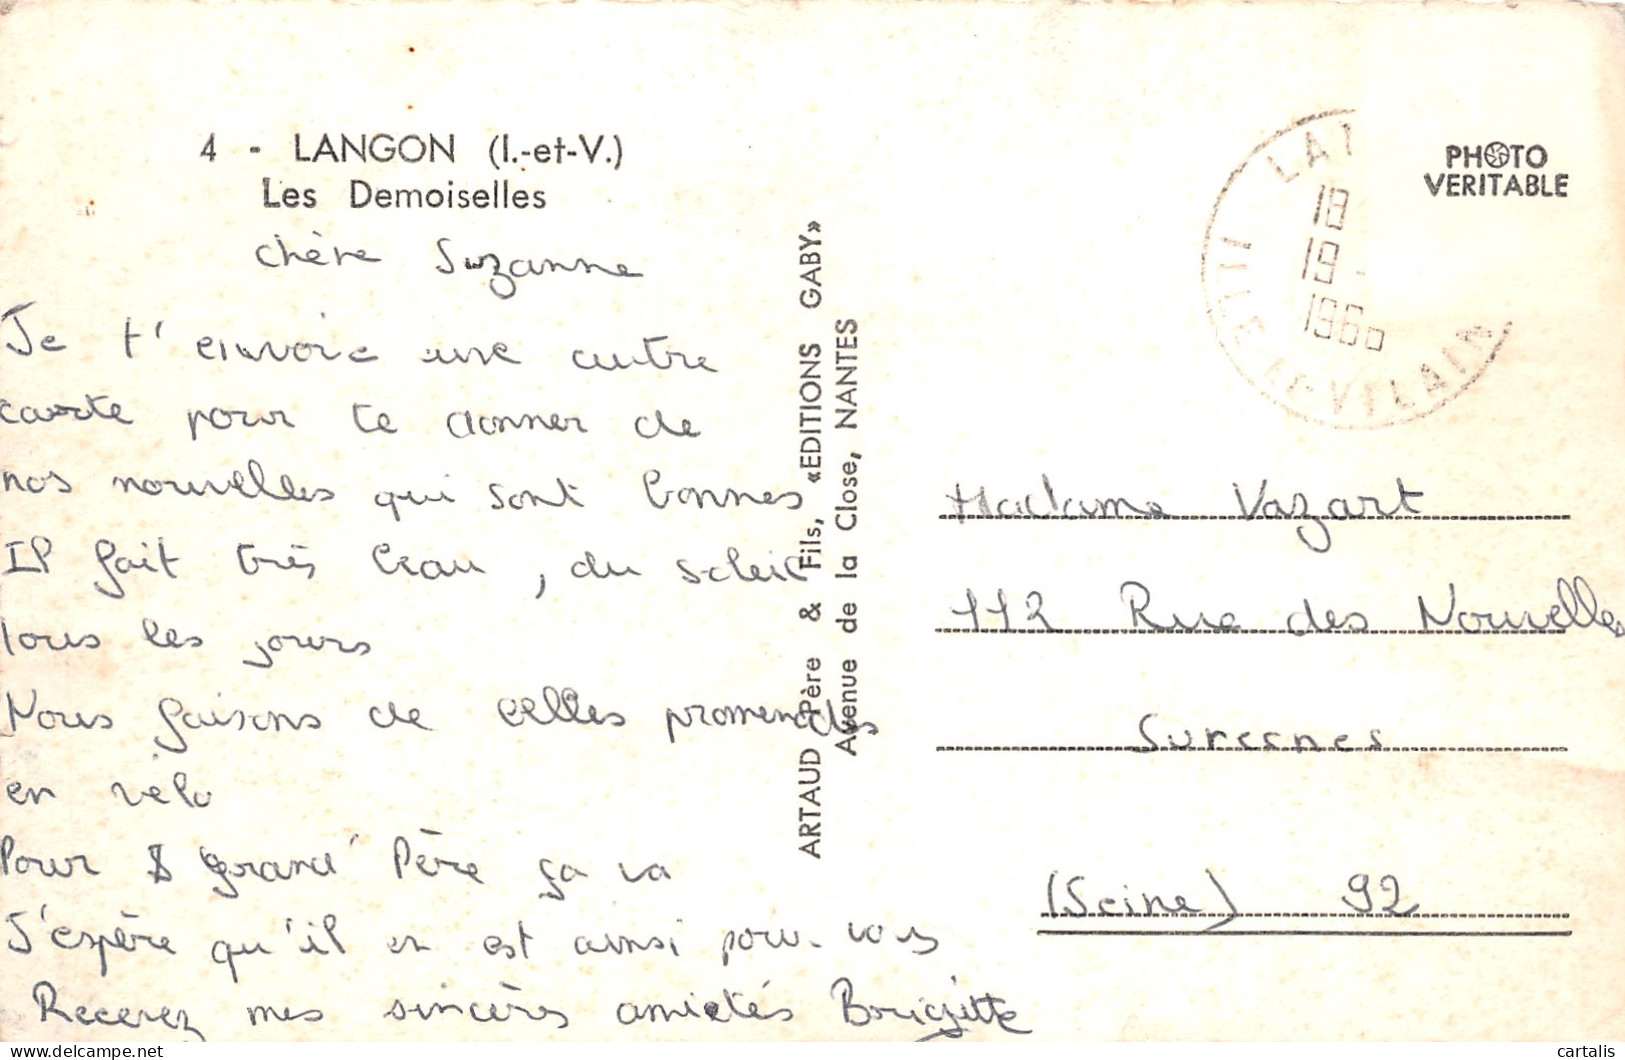 4 - LANGON (I.-et-V.)
Les Demoiselles
chère Suzanne
Je t'envoie une autre
carte pour te donner de
nos nouvelles qui sont bonnes
Il fait très beau, du soleil
tous les jours
Nous faisons de belles promenades
en vélo
Pour grand' Père ça va
J'espère qu'il en est ainsi pour vous
Recevez mes sincères amitiés Brigitte
ARTAUD Père & Fils, «EDITIONS GABY»
Avenue de la Close, NANTES
PHOTO
VERITABLE
18
19 -
196
ILLE-ET-VILAINE
Madame Vazart
112 Rue des Nouvelles
Suresnes
(Seine) 92
cartalis